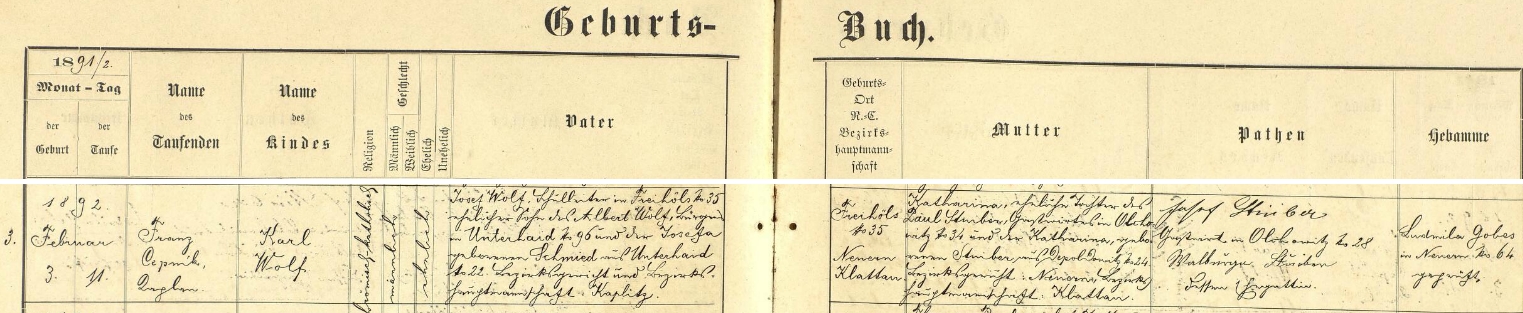 Geburts-
Buch.
1891/2.
Monat – Tag
der Geburt
der Taufe
Name des Taufenden
Name des Kindes
Religion
Geschlecht
Männlich
Weiblich
Ehelich
Unehelich
Vater
Geburts-
Ort
N.-C.
Bezirks-
hauptmann-
schaft
Mutter
Pathen
Hebamme
3.
1892.
Februar
3. 11.
Franz
Cepnik,
Kaplan.
Karl
Wolf.
römischkatholisch
männlich
ehelich
Josef Wolf, Schulleiter in Freihöls No 35
ehelicher Sohn des Albert Wolf, Bürgers
in Unterhaid No 96 und der Josefa
geborenen Schmied aus Unterhaid
No 22. Bezirksgericht und Bezirks-
hauptmannschaft: Kaplitz.
Freihöls
No 35
Neuern
Klattau
Katharina, eheliche Tochter des
Paul Stuiber, Gastwirtes in
No 34 und der Katharina, gebo-
renen Stuiber, aus No 24
Bezirksgericht: Neuern, Bezirks-
hauptmannschaft: Klattau.
Josef Stuiber
Gastwirt in No 28
Walburga Stuiber
dessen Ehegattin.
Ludmila Gobes
in Neuern No 64
geprüft.